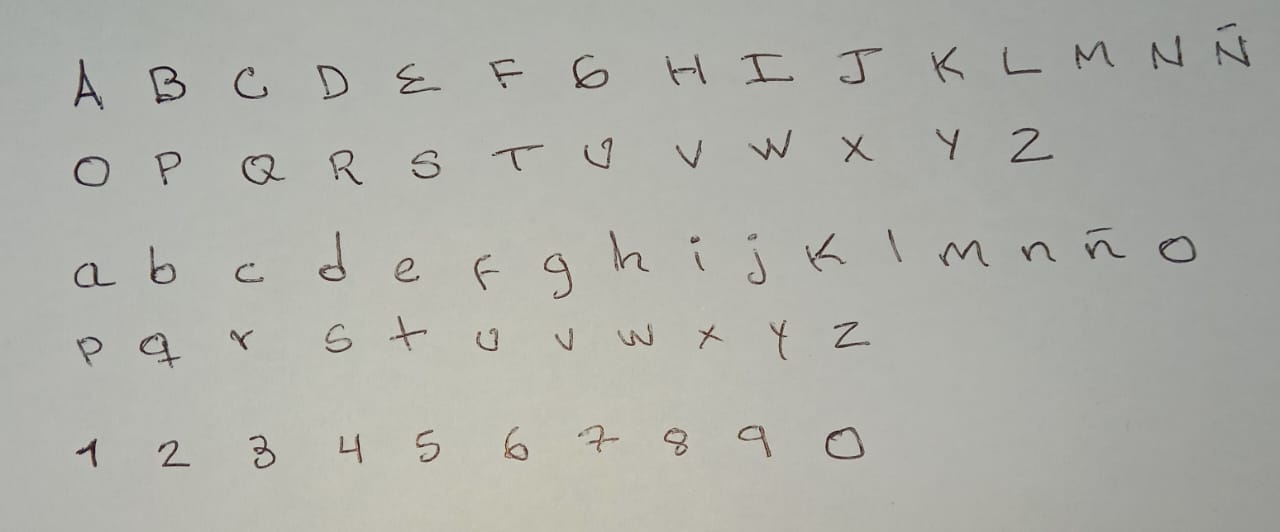 A B C D E F G H I J K L M N Ñ
O P Q R S T U V W X Y Z
a b c d e f g h i j k l m n ñ o
p q r s t u v w x y z
1 2 3 4 5 6 7 8 9 0